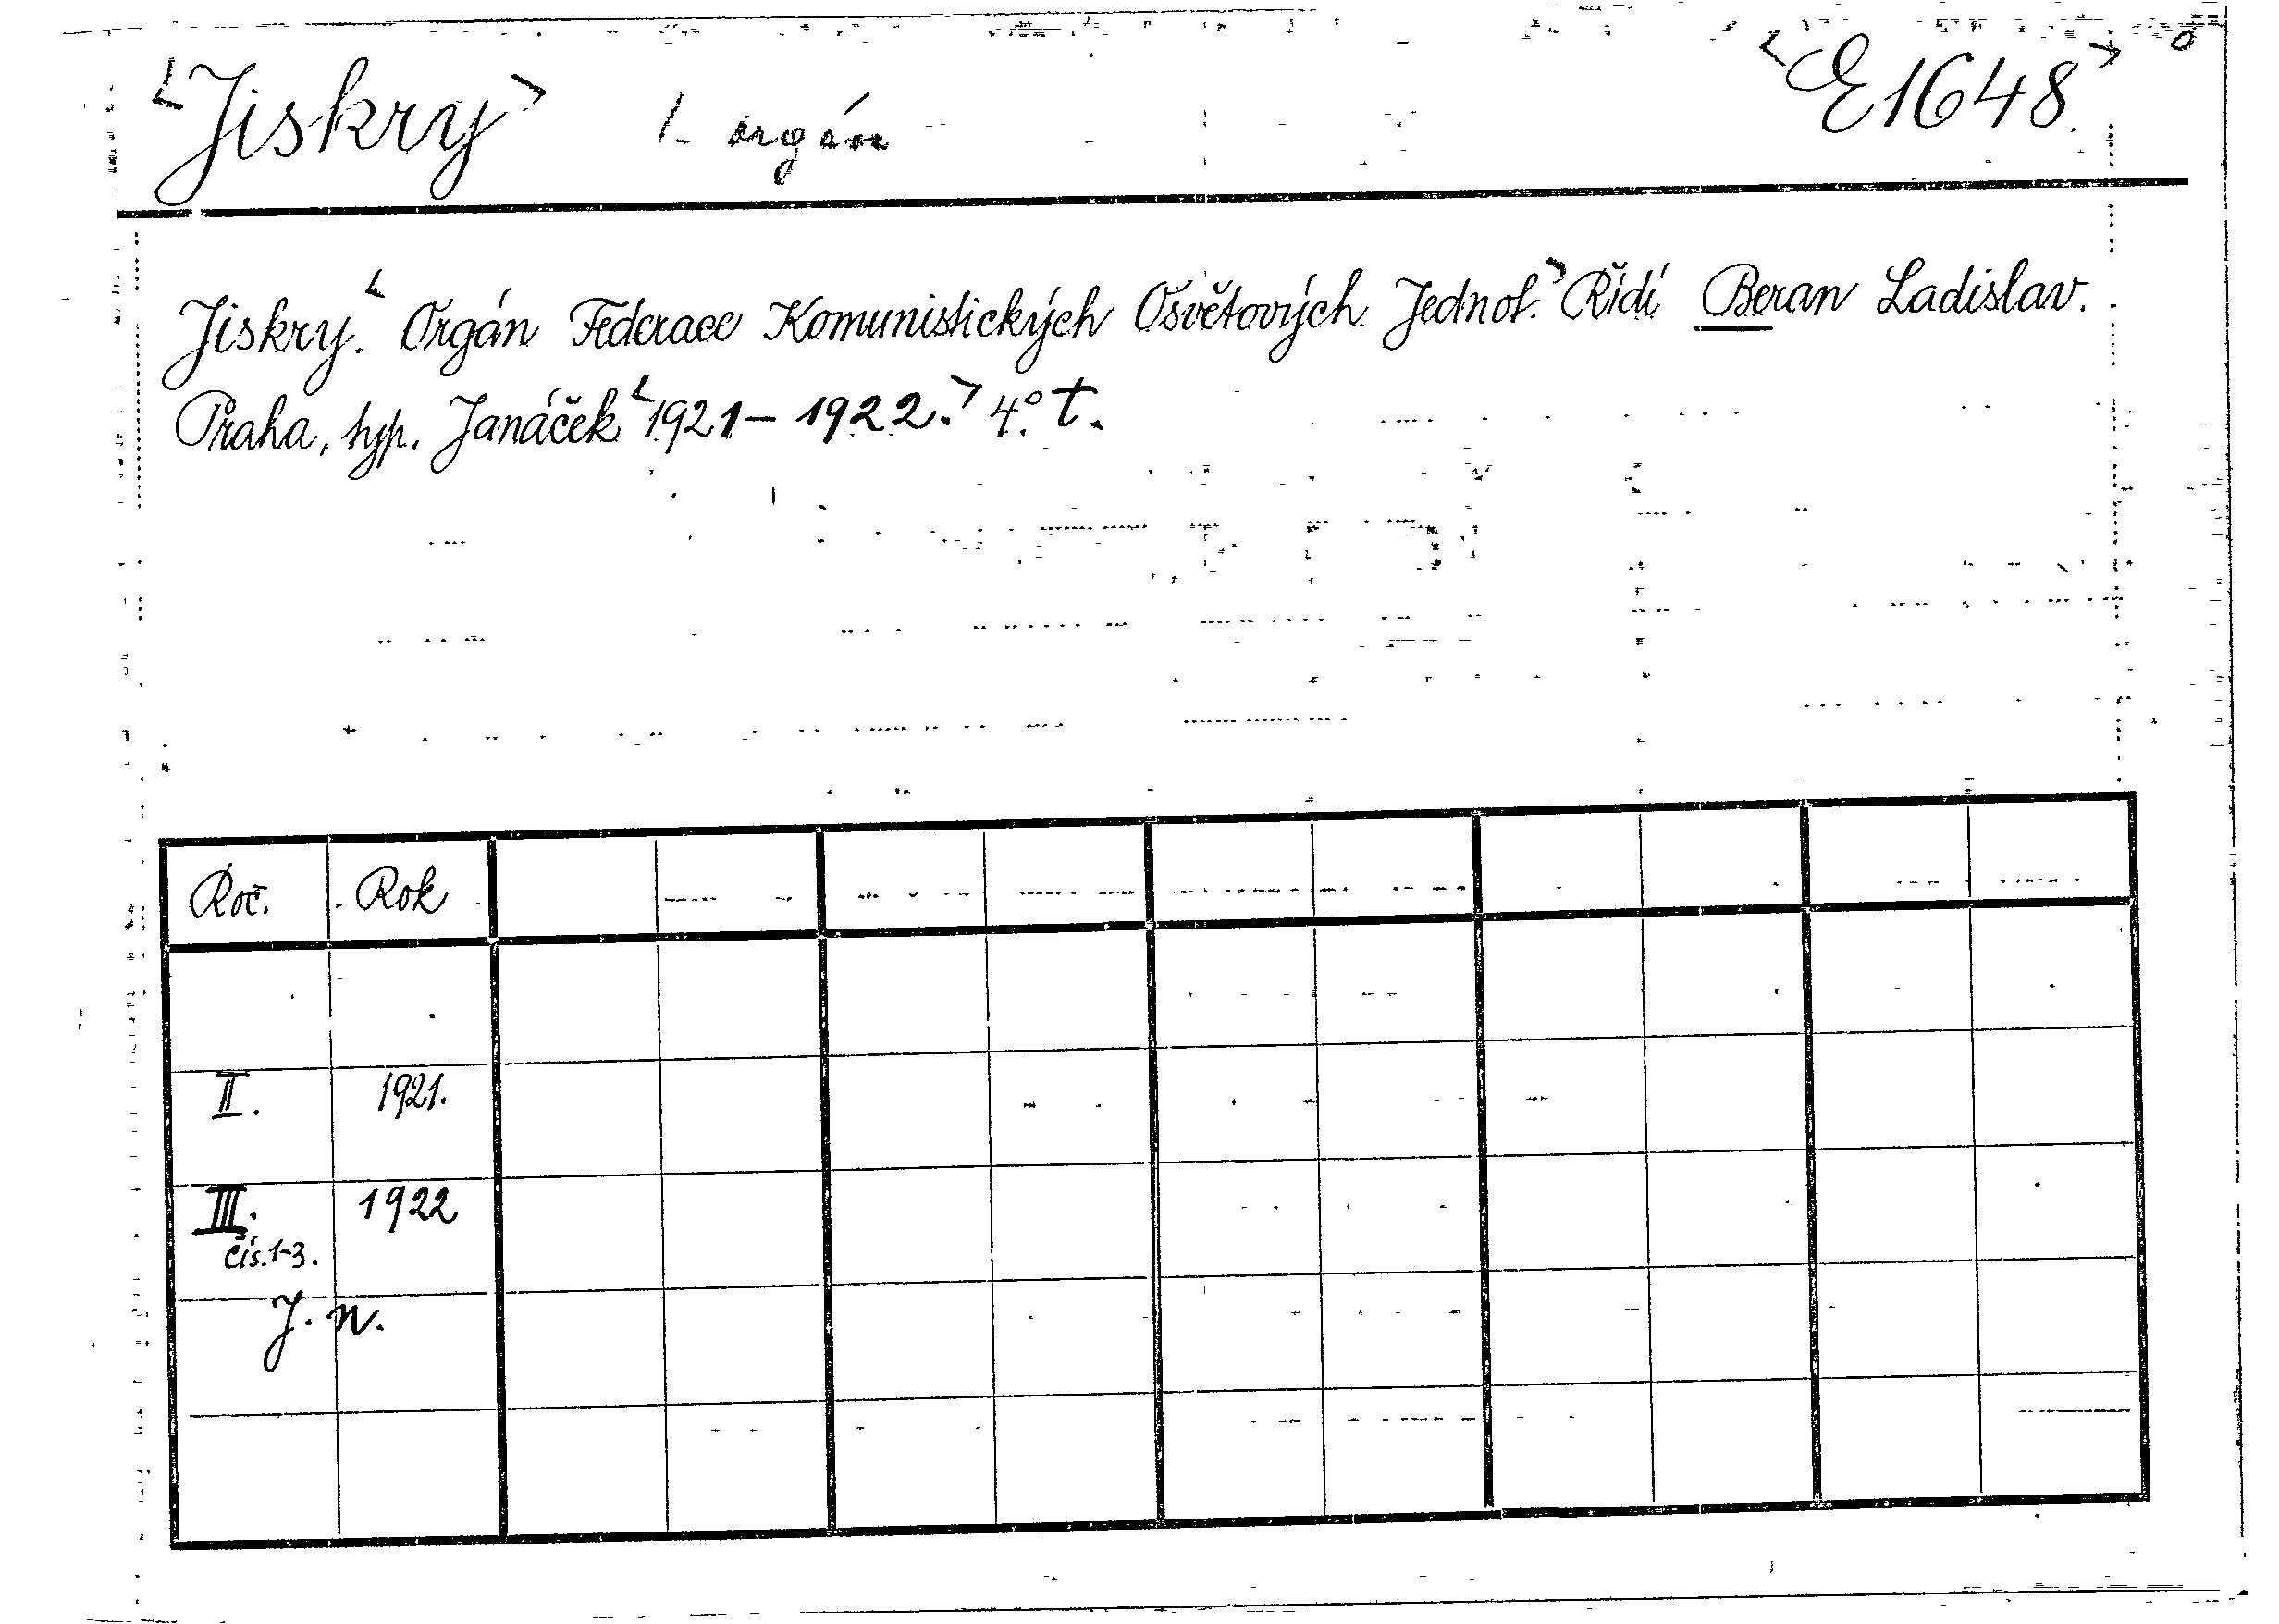 <Jiskry> 1. orgán <E1648>
Jiskry. <Orgán Federace Komunistických Osvětových Jednot.> Řídí Beran Ladislav.
Praha, typ. Janáček <1921-1922.> 4° t.
Roč. Rok
II. 1921.
III. 1922
čís. 1-3.
J. n.